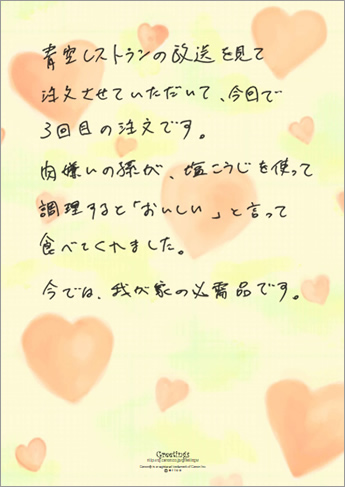 青空レストランの放送を見て
注文させていただいて、今回で
3回目の注文です。
肉嫌いの孫が、塩こうじを使って
調理すると「おいしい」と言って
食べてくれました。
今では、我が家の必需品です。
Greetings